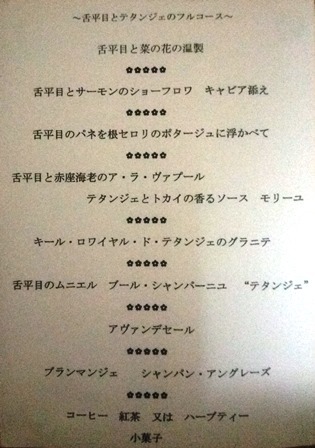 ～舌平目とテタンジェのフルコース～
舌平目と菜の花の温製
✿✿✿✿✿
舌平目とサーモンのショーフロワ　キャビア添え
✿✿✿✿✿
舌平目のパネを根セロリのポタージュに浮かべて
✿✿✿✿✿
舌平目と赤座海老のア・ラ・ヴァプール
テタンジェとトカイの香るソース　モリーユ
✿✿✿✿✿
キール・ロワイヤル・ド・テタンジェのグラニテ
✿✿✿✿✿
舌平目のムニエル　ブール・シャンパーニュ　“テタンジェ”
✿✿✿✿✿
アヴァンデセール
✿✿✿✿✿
ブランマンジェ　　シャンパン・アングレーズ
✿✿✿✿✿
コーヒー　紅茶　又は　ハーブティー
小菓子